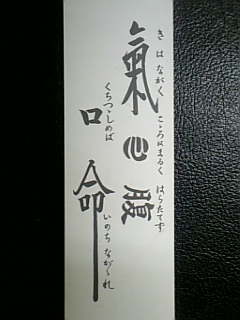 きはながく　こゝろはまるく　はらたてず
氣心腹
くちつゝしめば　いのちながゝれ
口命